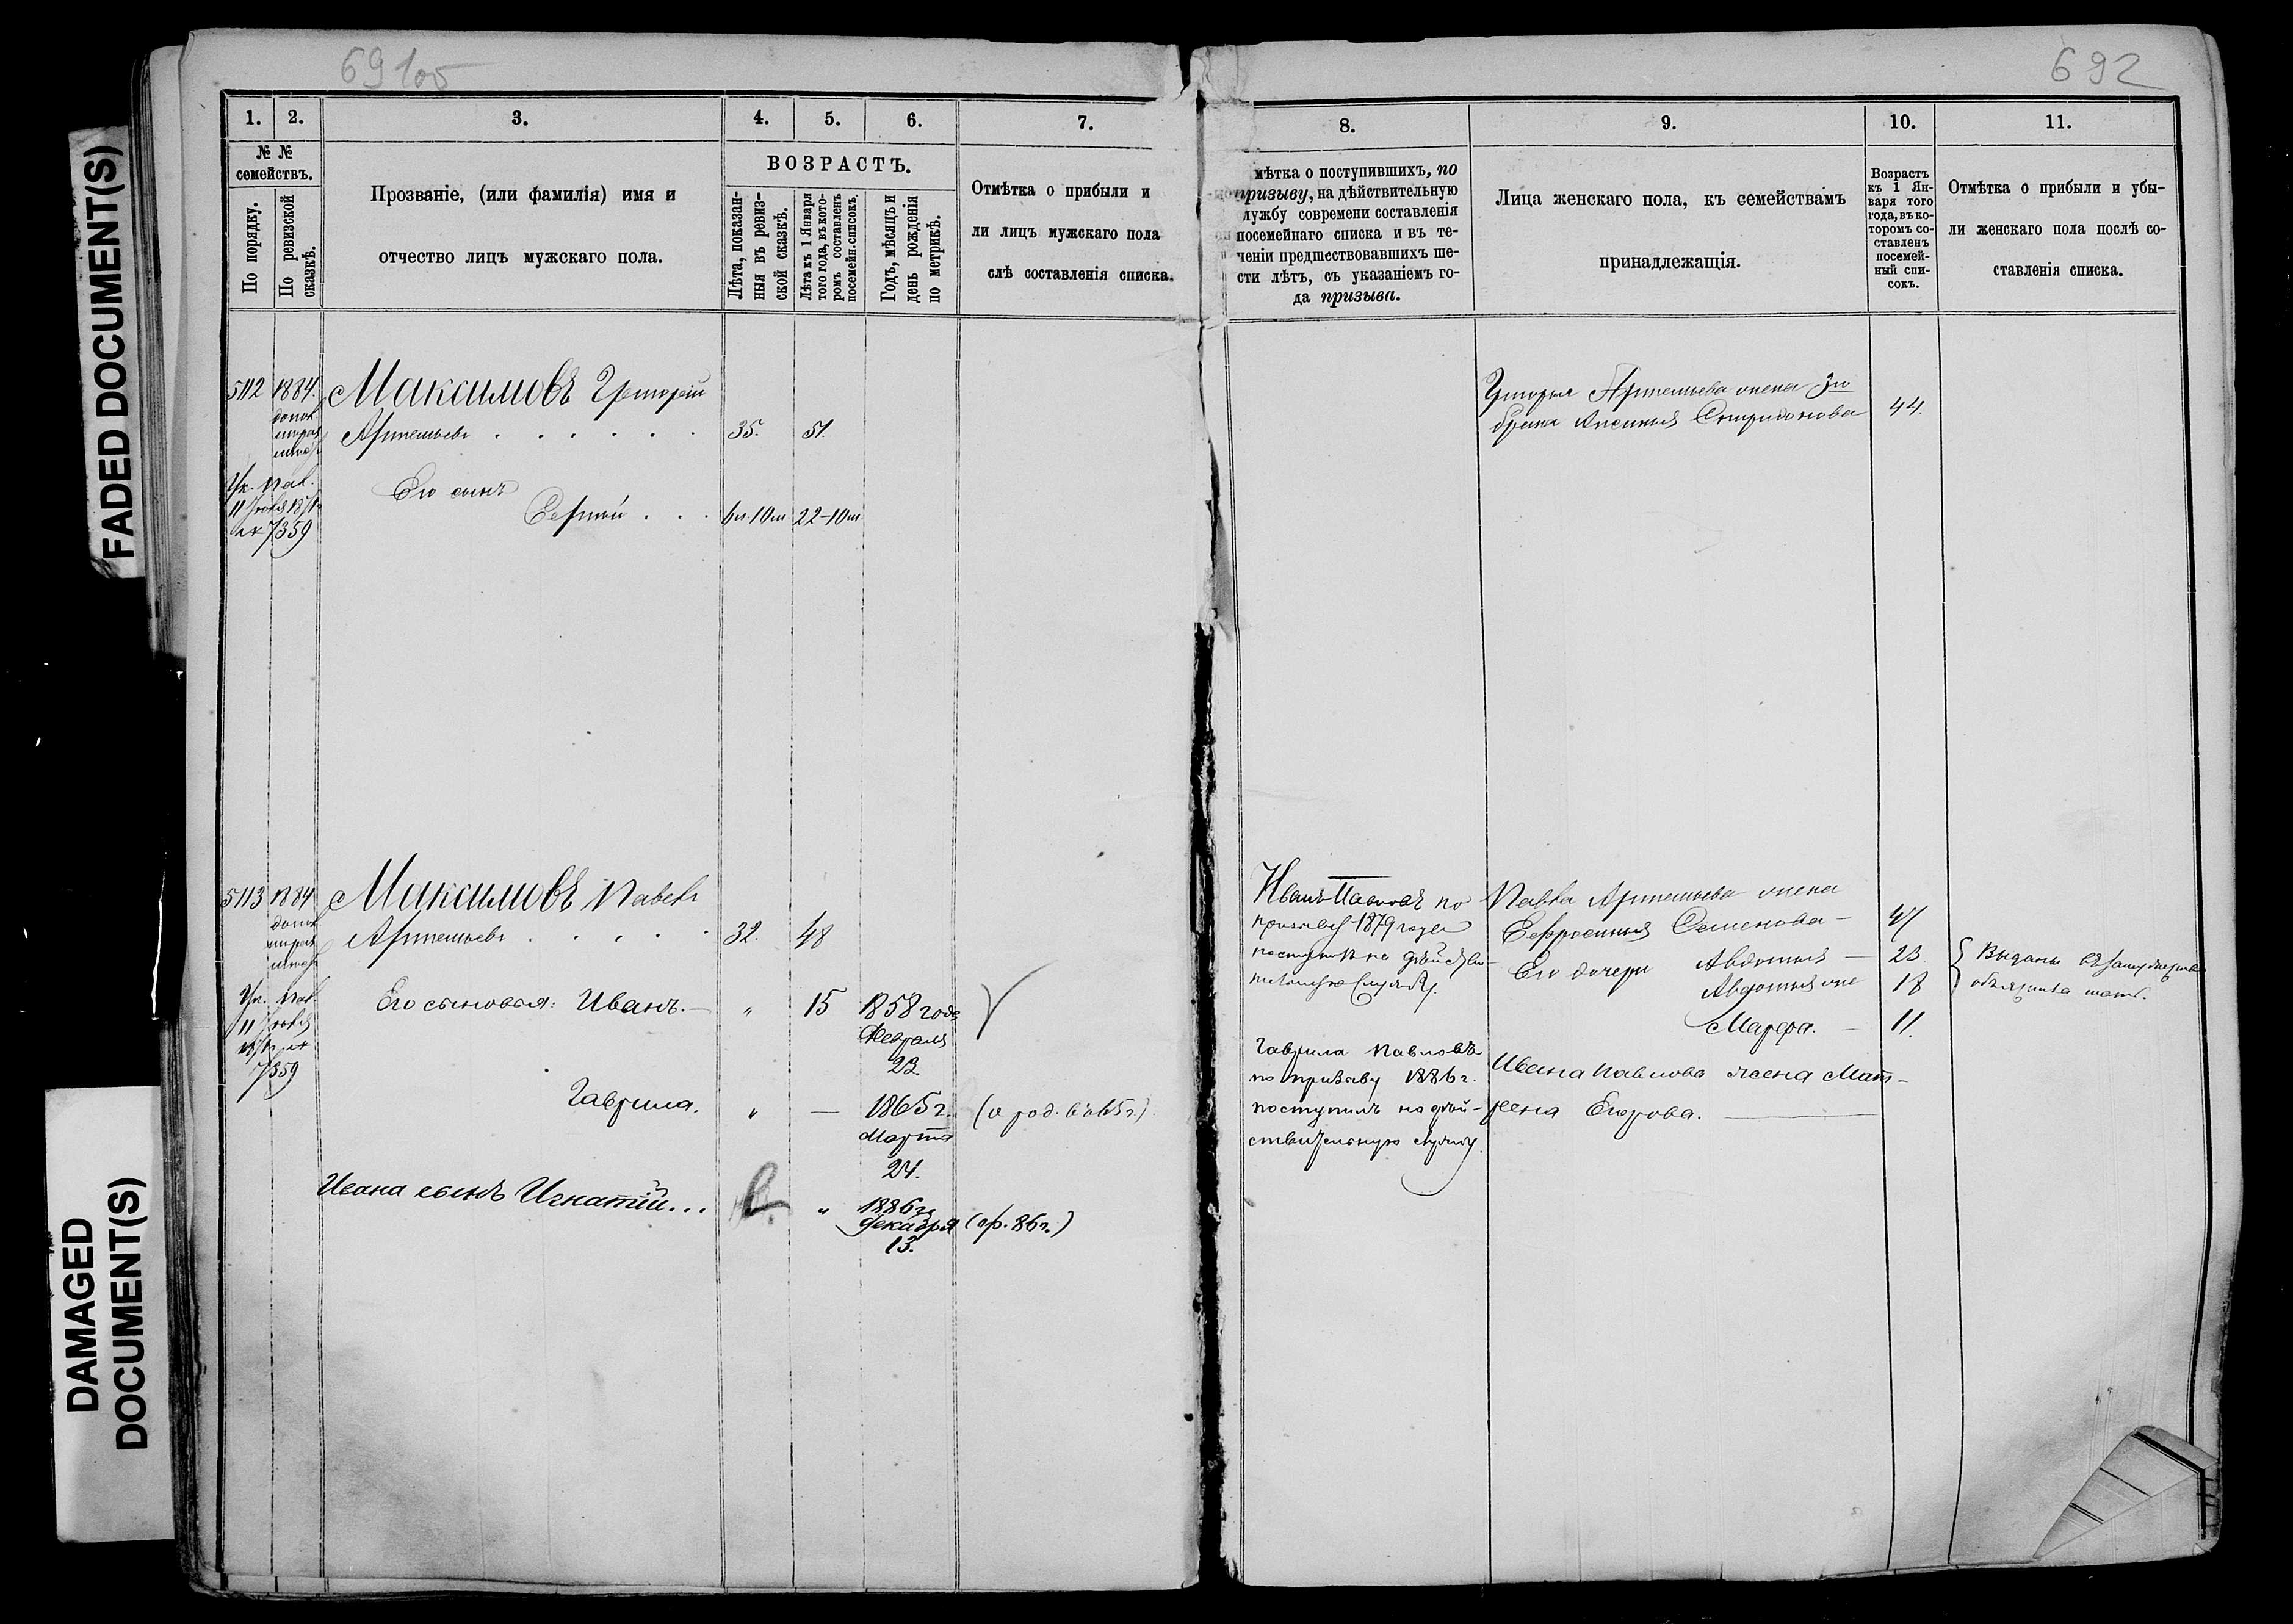 FADED DOCUMENT(S)
DAMAGED
DOCUMENT(S)
69 1об
1. 2. 3. 4. 5. 6. 7.
№ №
семействъ.
По порядку.
По ревизской
сказкѣ.
Прозваніе, (или фамилія) имя и
отчество лицъ мужскаго пола.
ВОЗРАСТЪ.
Лѣта, показан-
ныя въ ревиз-
ской сказкѣ.
Лѣта къ 1 Января
того года, въ кото-
ромъ составленъ
посемейн. списокъ.
Годъ, мѣсяцъ и
день рожденія
по метрикѣ.
Отмѣтка о прибыли и
ли лицъ мужскаго пола
слѣ составленія списка.
5112 1884. Максимовъ Григорій
Артемьевъ . . . . . . 35. 51.
Ук. Пал.
Его сынъ
Сергѣй . . . 6л-10м 22-10м
№ 7359
5113 1884 Максимовъ Павелъ
Артемьевъ . . . . . 32. 48
Ук. Пал.
Его сыновья: Иванъ. — „ 15 1858 года
Февраля
23.
7359
Гаврила. „ — 1865 г. (о род. въ 65 г.)
Марта
24.
Ивана сынъ Игнатій... „ 1886 г.
Декабря (пр. 86 г.)
13.
692
8. 9. 10. 11.
мѣтка о поступившихъ, по
призыву, на дѣйствительную
лужбу современи составленія
посемейнаго списка и въ те-
ченіи предшествовавшихъ ше-
сти лѣтъ, съ указаніемъ го-
да призыва.
Лица женскаго пола, къ семействамъ
принадлежащія.
Возрастъ
къ 1 Ян-
варя того
года, въ ко-
торомъ со-
ставленъ
посемей-
ный спи-
сокъ.
Отмѣтка о прибыли и убы-
ли женскаго пола послѣ со-
ставленія списка.
Григорья Артемьева жена
Аксинья Спиридонова 44.
Иванъ Павловъ по
призыву 1879 года
поступилъ на дѣйстви-
тельную службу.
Павла Артемьева жена
Ефросинья Семенова — 47
Его дочери Авдотья — 23.
Авдотья же 18
Марфа. — 11.
Выданы въ замужество
Гаврила Павловъ
по призыву 1886 г.
поступилъ на дѣй-
ствительную службу.
Ивана Павлова жена Мат-
рена Егорова.